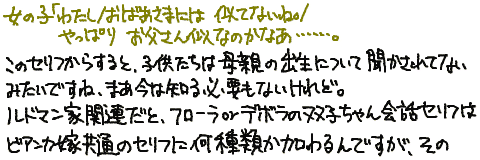 女の子「わたし/おばあさまには 似てないね。/
やっぱり お父さん似なのかなあ……。
このセリフからすると、子供たちは母親の出生について聞かされてない
みたいですね、まあ今は知る必要もないけれど。
ルドマン家関連だと、フローラorデボラの双子ちゃん会話セリフは
ビアンカ嫁共通のセリフに何種類か加わるんですが、その